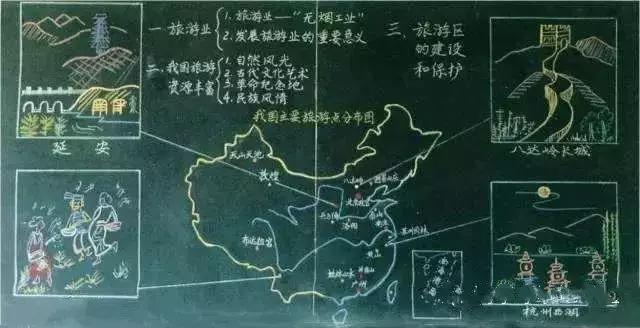 一.旅游业
1.旅游业——"无烟工业"
2.发展旅游业的重要意义
二.我国旅游
资源丰富
1.自然风光
2.古代文化艺术
3.革命纪念地
4.民族风情
三.旅游区
的建设
和保护
我国主要旅游点分布图
延安
八达岭长城
天山天池
敦煌
八达岭
避暑山庄
北京故宫
兵马俑
洛阳
泰山
苏州园林
布达拉宫
黄山
桂林山水
广州
南海诸岛
杭州西湖